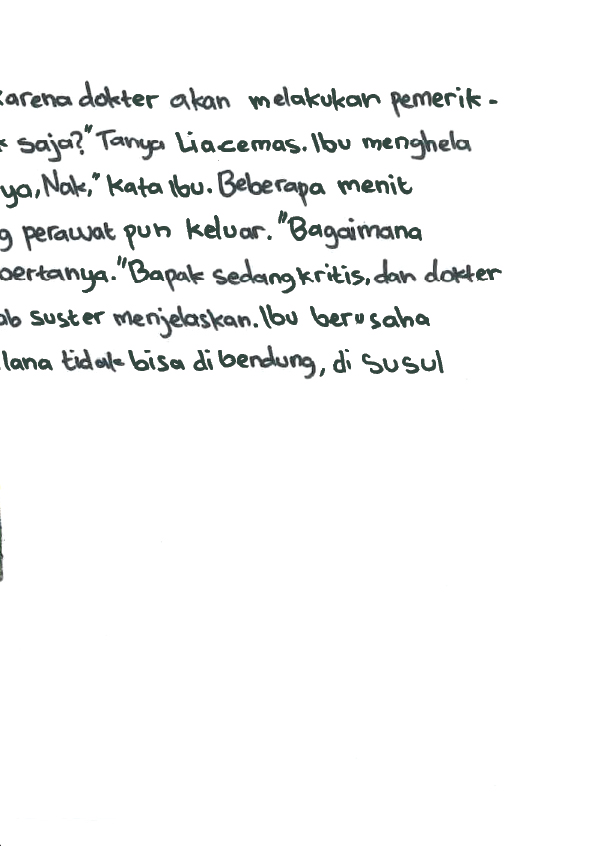 karena dokter akan melakukan pemerik-
saja?" Tanya Lia cemas. Ibu menghela
ya, Nak," kata Ibu. Beberapa menit
g perawat pun keluar. "Bagaimana
bertanya. "Bapak sedang kritis, dan dokter
ab suster menjelaskan. Ibu berusaha
lana tidak bisa di bendung, di susul